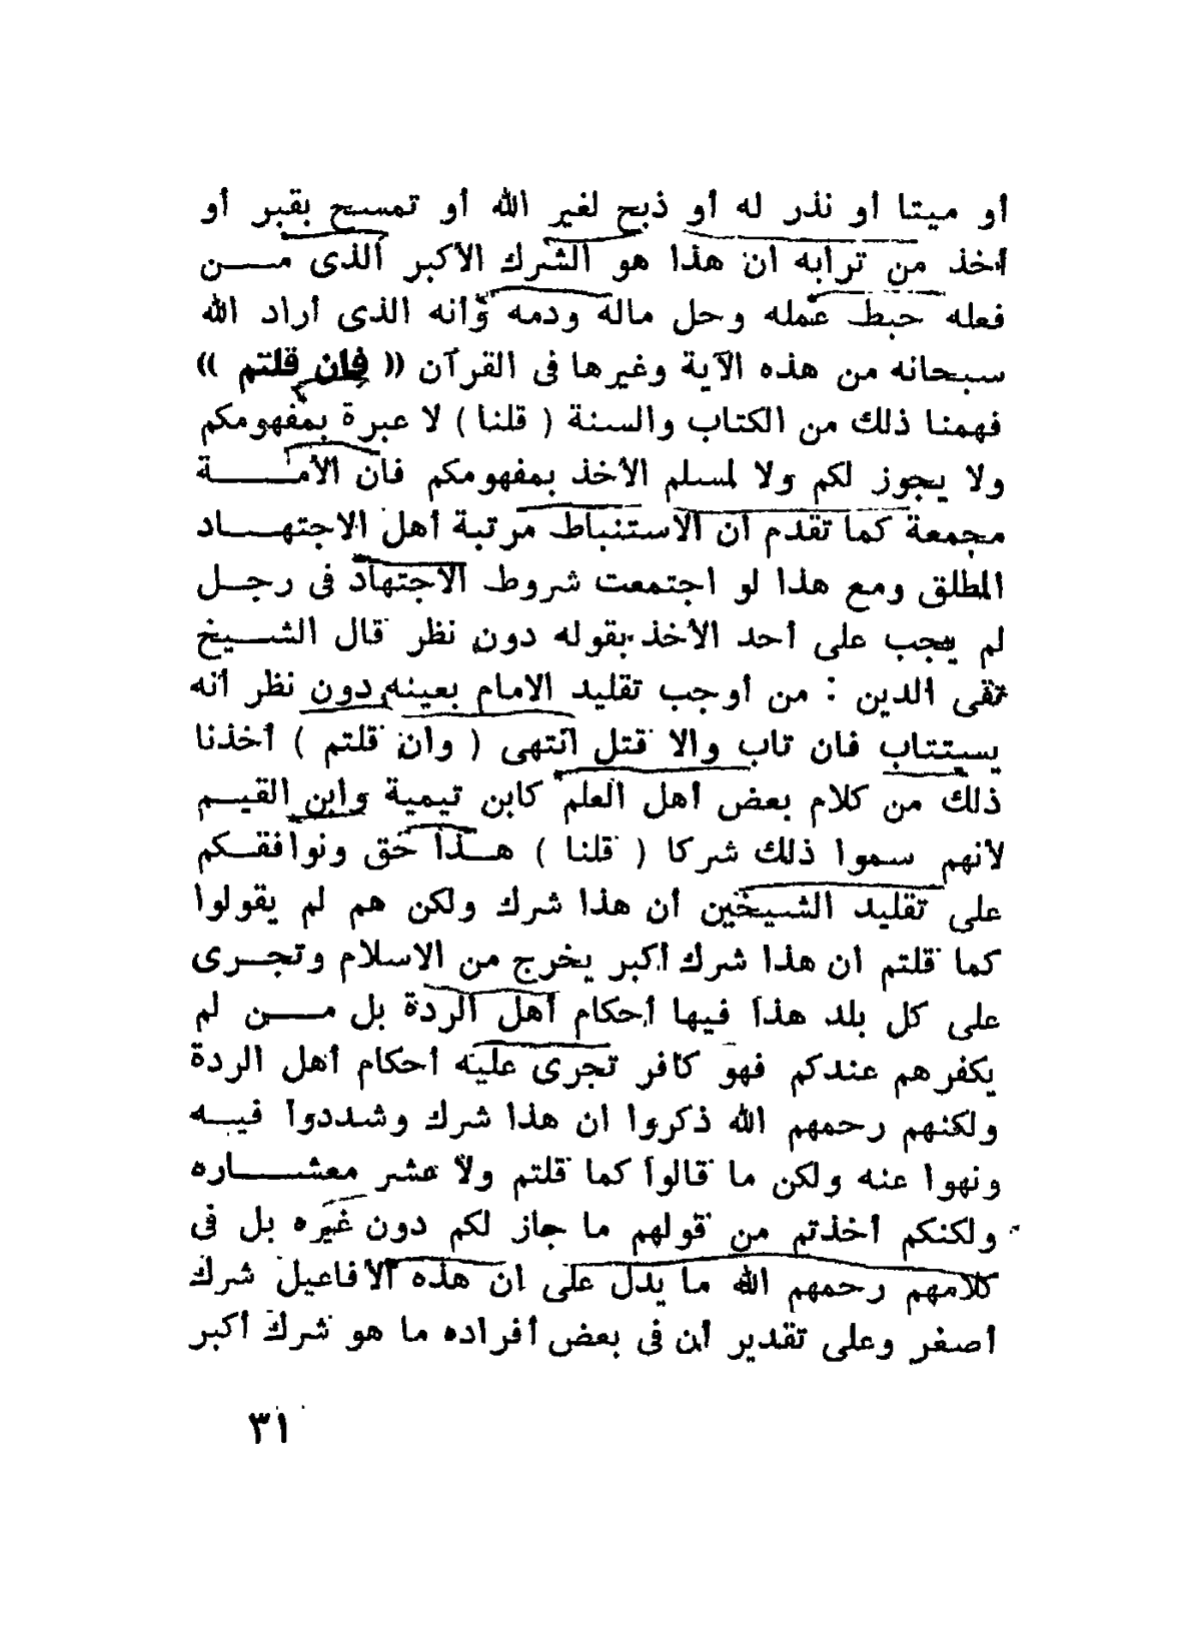 أو ميتا أو نذر له أو ذبح لغير الله أو تمسح بقبر أو
أخذ من ترابه ان هذا هو الشرك الأكبر الذى مـــن
فعله حبط عمله وحل ماله ودمه وأنه الذى أراد الله
سبحانه من هذه الآية وغيرها فى القرآن (( فإن قلتم ))
فهمنا ذلك من الكتاب والسنة ( قلنا ) لا عبرة بمفهومكم
ولا يجوز لكم ولا لمسلم الأخذ بمفهومكم فان الأمـــــة
مجمعة كما تقدم أن الاستنباط مرتبة أهل الاجتهـــاد
المطلق ومع هذا لو اجتمعت شروط الاجتهاد فى رجـل
لم يجب على أحد الأخذ بقوله دون نظر قال الشـــيخ
تقى الدين : من أوجب تقليد الامام بعينه دون نظر أنه
يستتاب فان تاب والا قتل انتهى ( وان قلتم ) أخذنا
ذلك من كلام بعض أهل العلم كابن تيمية وابن القيـم
لأنهم سموا ذلك شركا ( قلنا ) هــذا حق ونوافقـكم
على تقليد الشيخين أن هذا شرك ولكن هم لم يقولوا
كما قلتم ان هذا شرك أكبر يخرج من الاسلام وتجـرى
على كل بلد هذا فيها أحكام أهل الردة بل مـــن لم
يكفرهم عندكم فهو كافر تجرى عليه أحكام أهل الردة
ولكنهم رحمهم الله ذكروا ان هذا شرك وشددوا فيـه
ونهوا عنه ولكن ما قالوا كما قلتم ولا عشر معشــــاره
ولكنكم أخذتم من قولهم ما جاز لكم دون غيره بل فى
كلامهم رحمهم الله ما يدل على ان هذه الأفاعيل شرك
أصغر وعلى تقدير أن فى بعض أفراده ما هو شرك أكبر
٣١